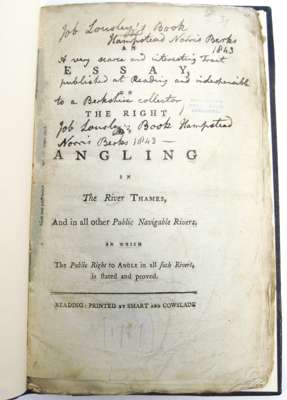 Job Lousley's Book
Hampstead Norris Berks
1843
AN
A very scarce and interesting Tract
ESSAY,
published at Reading and indispensible
ON
to a Berkshire collector
THE RIGHT
Job Lousley's Book Hampstead
OF
Norris Berks 1843 —
ANGLING
IN
The River THAMES,
And in all other Public Navigable Rivers,
IN WHICH
The Public Right to ANGLE in all such Rivers,
is stated and proved.
READING: PRINTED BY SMART AND COWSLADE
[1787]